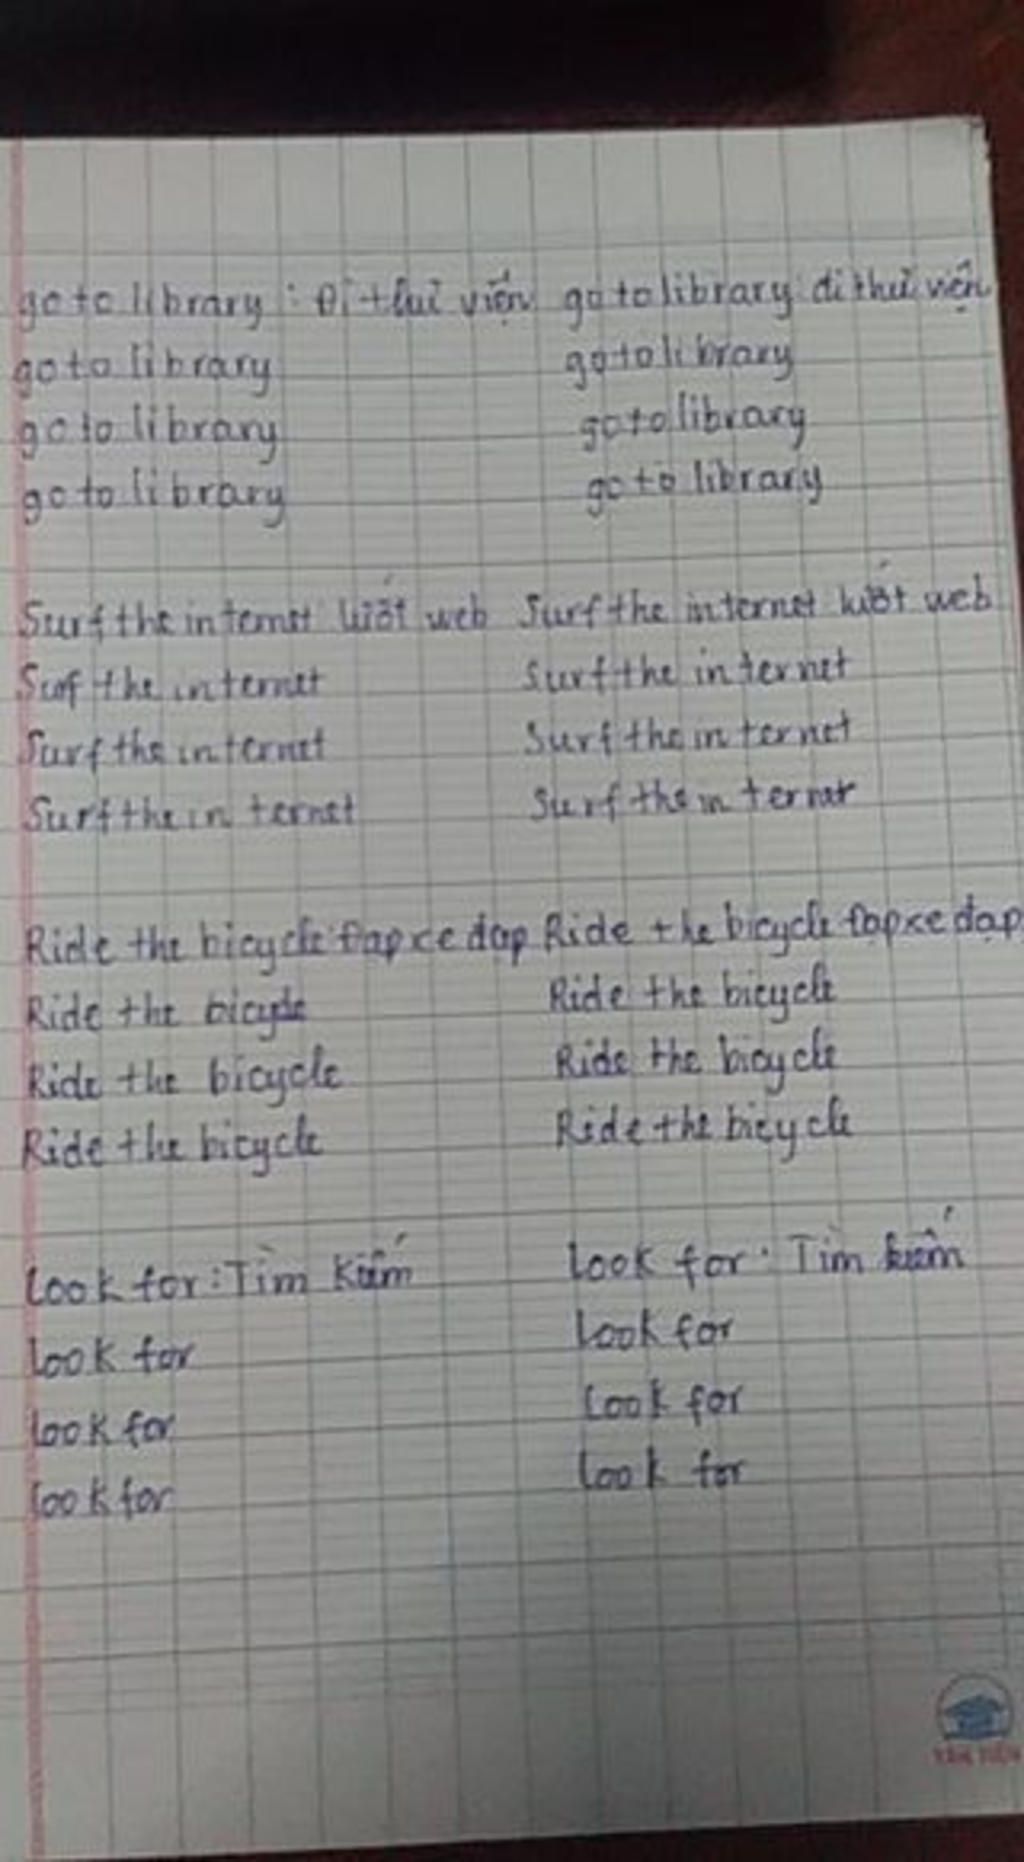 go to library : Đi thư viện go to library : đi thư viện
go to library go to library
go to library go to library
go to library go to library
Surf the internet lướt web Surf the internet lướt web
Surf the internet Surf the internet
Surf the internet Surf the internet
Surf the internet Surf the internet
Ride the bicycle đạp xe đạp Ride the bicycle đạp xe đạp
Ride the bicycle Ride the bicycle
Ride the bicycle Ride the bicycle
Ride the bicycle Ride the bicycle
Look for : Tìm Kiếm Look for : Tìm kiếm
Look for Look for
Look for Look for
Look for Look for